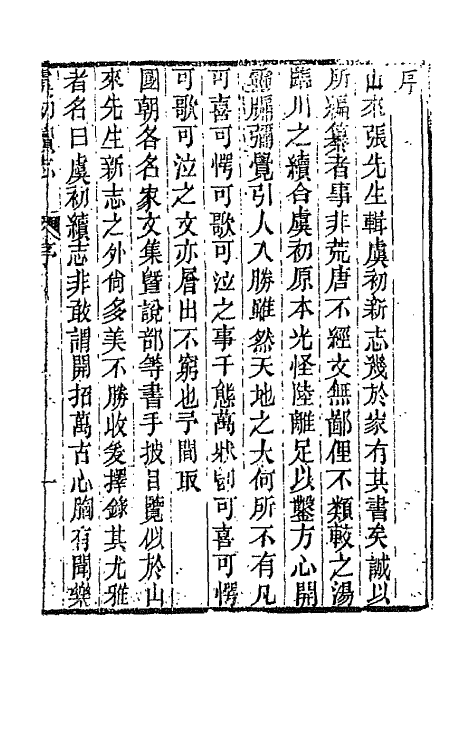 序
山來張先生輯虞初新志幾於家有其書矣誠以
所編纂者事非荒唐不經文無鄙俚不類較之湯
臨川之續合虞初原本光怪陸離足以鑿方心開
靈牖彌覺引人入勝雖然天地之大何所不有凡
可喜可愕可歌可泣之事千態萬狀則可喜可愕
可歌可泣之文亦層出不窮也予間取
國朝各名家文集曁說部等書手披目覽似於山
來先生新志之外尙多美不勝收爰擇錄其尤雅
者名曰虞初續志非敢謂開拓萬古心胸有聞樂
虞初續志 序 一